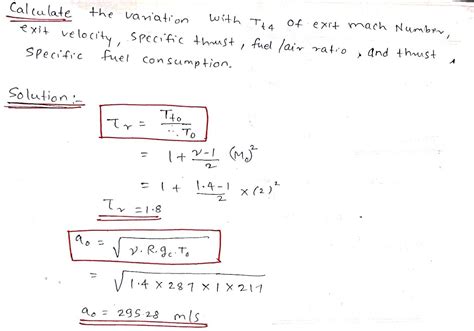 Calculate the variation with Tt4 of exit mach Number,
exit velocity, specific thrust, fuel/air ratio, and thrust
specific fuel consumption.
Solution:-
τr = Tto / To
= 1 + γ-1/2 (Mo)²
= 1 + 1.4-1/2 × (2)²
τr = 1.8
ao = √γ.R.gc.To
= √1.4 × 287 × 1 × 217
ao = 295.28 m/s